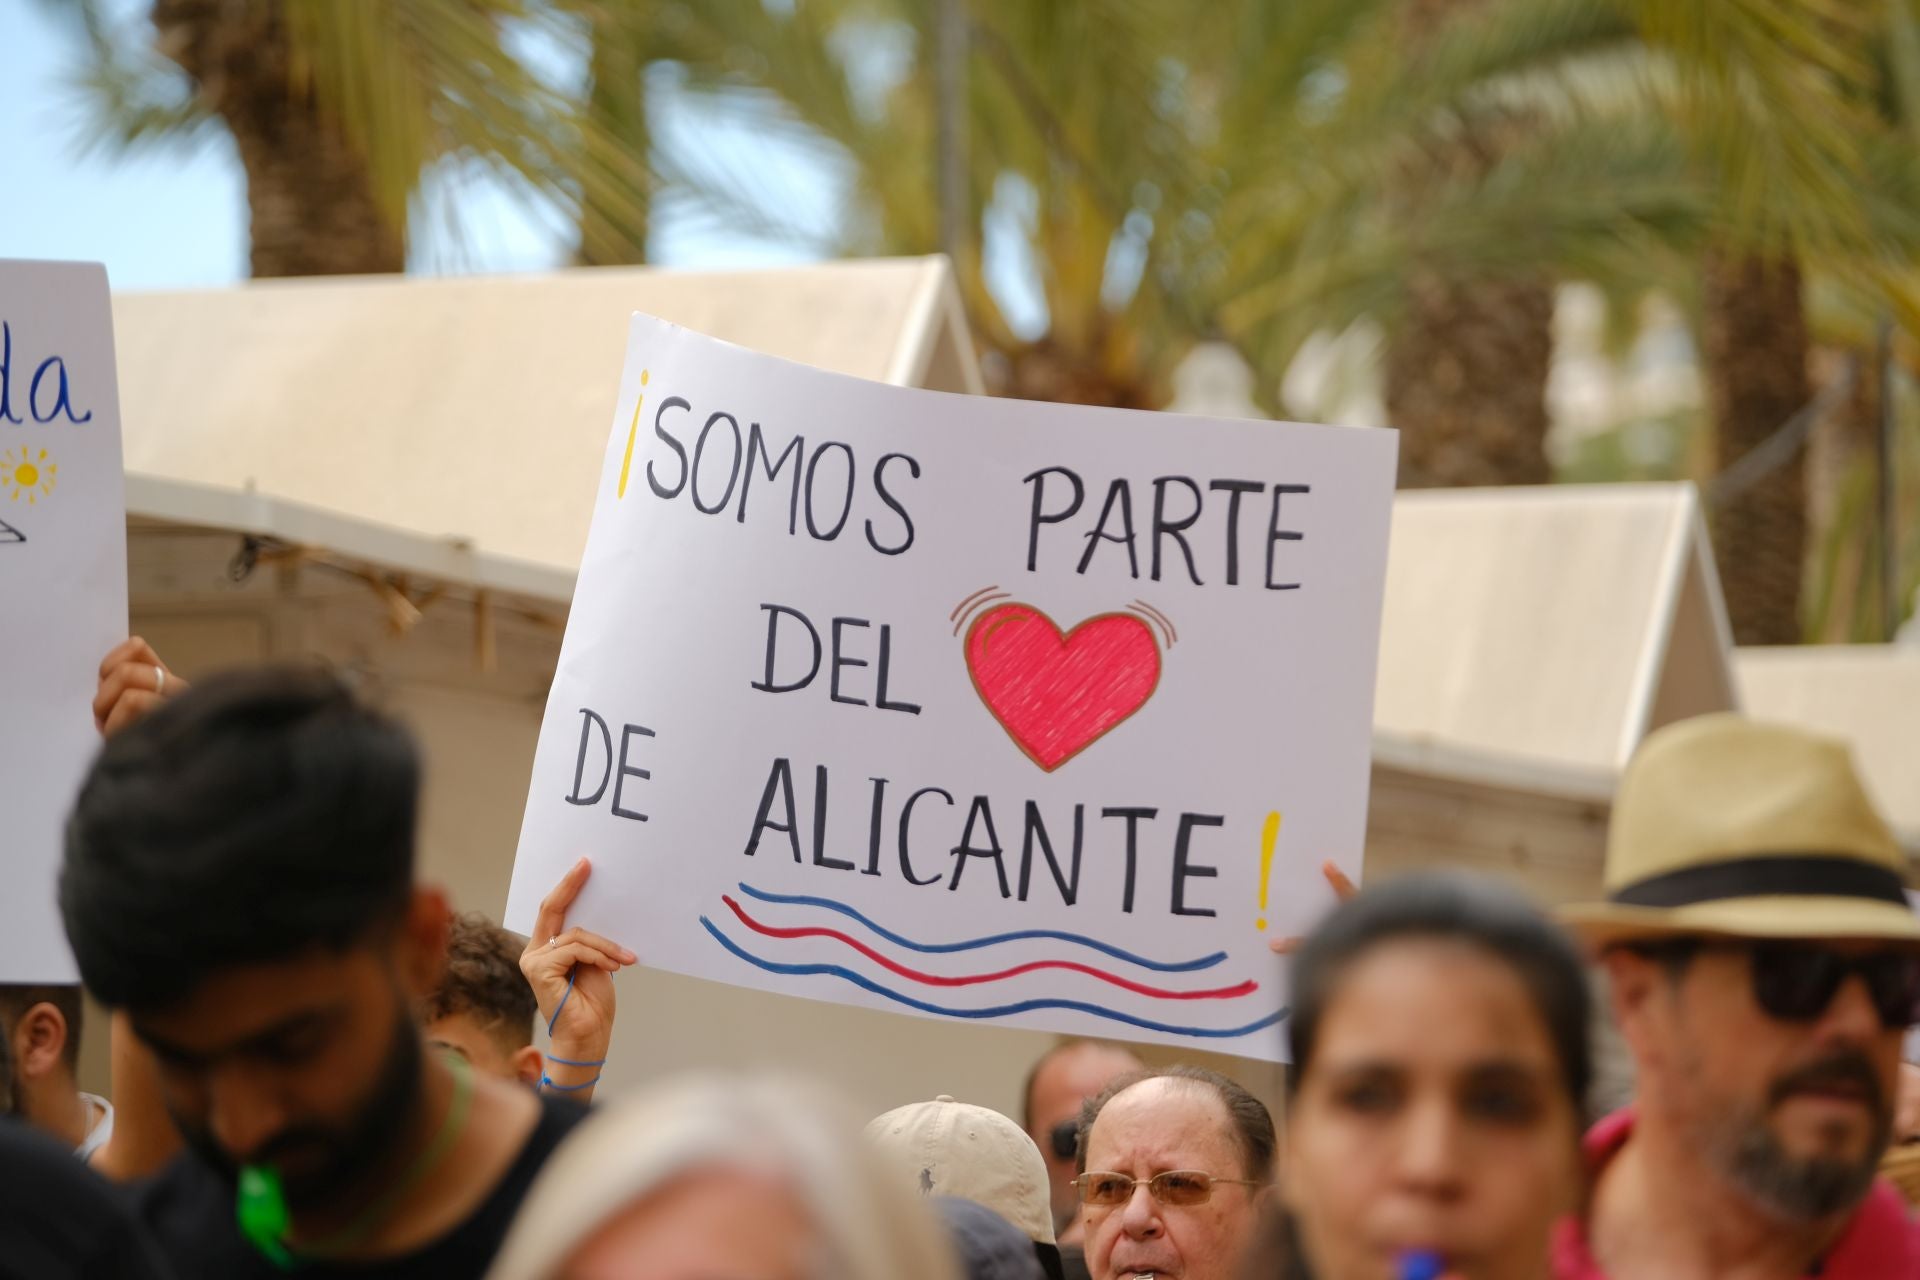 ¡SOMOS PARTE
DEL
DE ALICANTE!